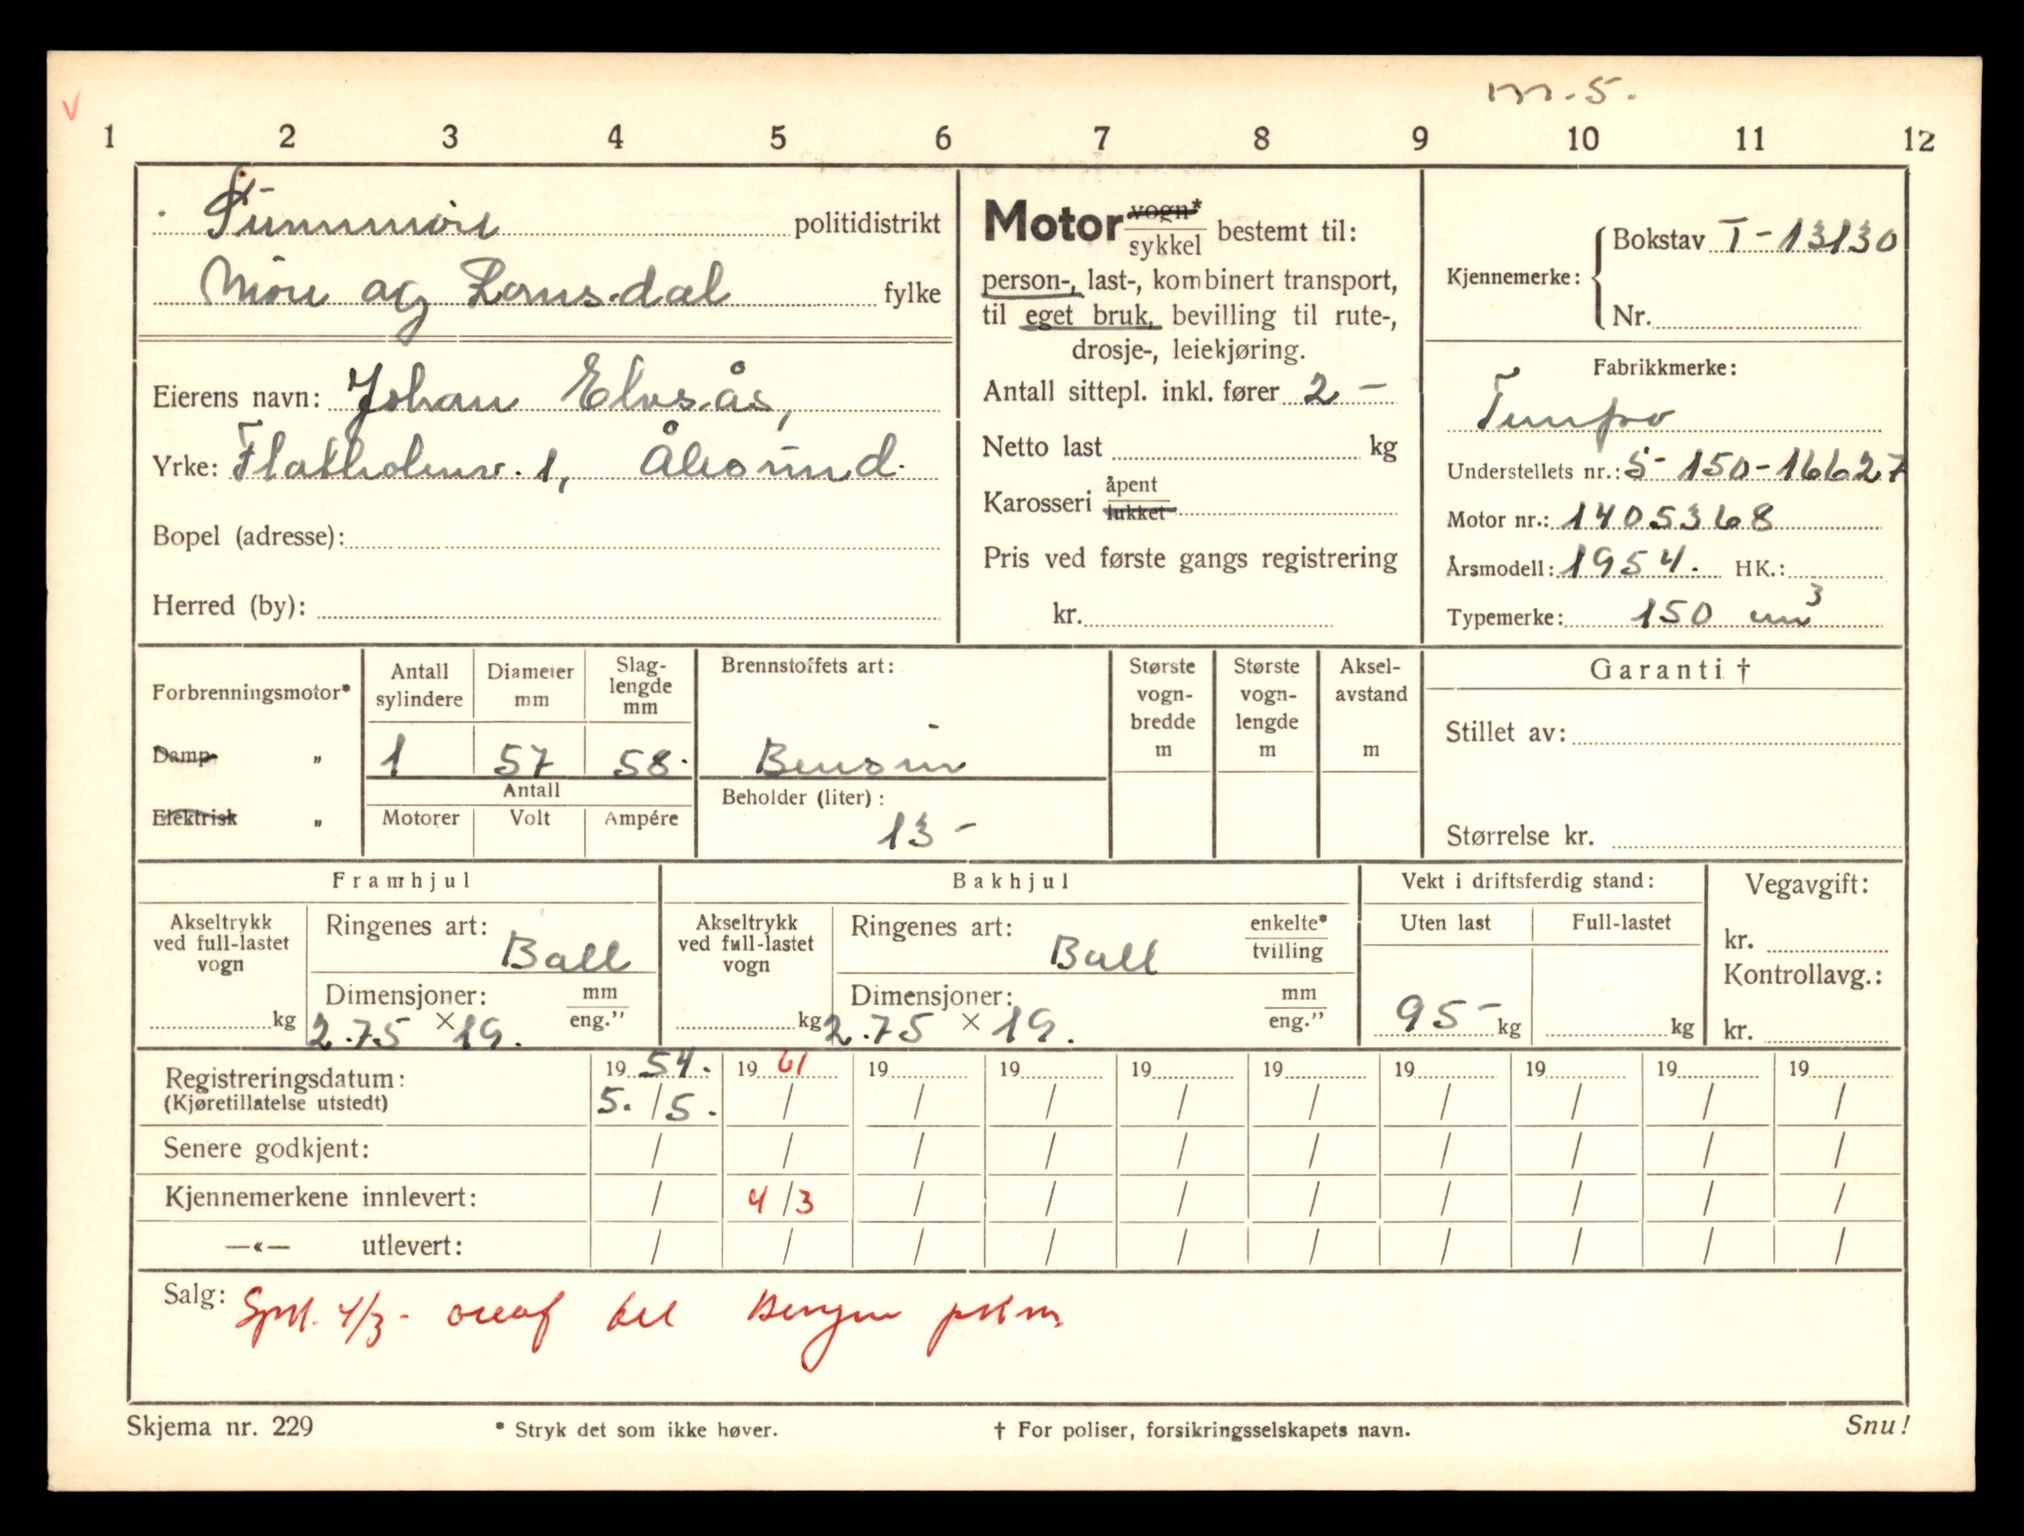 m. 5.
1 2 3 4 5 6 7 8 9 10 11 12
Sunnmøre politidistrikt
Møre og Romsdal fylke
Eierens navn: Johan Elvsås,
Yrke: Flatholmv. 1, Ålesund
Bopel (adresse):
Herred (by):
Motor vogn* / sykkel bestemt til:
person-, last-, kombinert transport,
til eget bruk, bevilling til rute-,
drosje-, leiekjøring.
Antall sittepl. inkl. fører 2 -
Netto last kg
Karosseri åpent / lukket
Pris ved første gangs registrering
kr.
Kjennemerke: Bokstav T-13130
Nr.
Fabrikkmerke:
Tempo
Understellets nr.: S-150-16627
Motor nr.: 1405368
Årsmodell: 1954. HK.:
Typemerke: 150 cm³
Forbrenningsmotor*
Damp- „
Elektrisk „
Antall sylindere Diameter mm Slag-lengde mm
1 57 58.
Antall
Motorer Volt Ampére
Brennstoffets art:
Bensin
Beholder (liter):
13 -
Største vogn-bredde m
Største vogn-lengde m
Aksel-avstand m
Garanti †
Stillet av:
Størrelse kr.
Framhjul
Akseltrykk ved full-lastet vogn
kg
Ringenes art: Ball
Dimensjoner: mm / eng."
2.75 × 19.
Bakhjul
Akseltrykk ved full-lastet vogn
kg
Ringenes art: Ball enkelte* / tvilling
Dimensjoner: mm / eng."
2.75 × 19.
Vekt i driftsferdig stand:
Uten last Full-lastet
95 - kg kg
Vegavgift:
kr.
Kontrollavg.:
kr.
Registreringsdatum: 19 54. 19 61 19 19 19 19 19 19 19 19
(Kjøretillatelse utstedt) 5. / 5. / / / / / / / / /
Senere godkjent: / / / / / / / / / /
Kjennemerkene innlevert: / 4/3 / / / / / / / /
—«— utlevert: / / / / / / / / / /
Salg: 4/3 - til Bergen
Skjema nr. 229 * Stryk det som ikke høver. † For poliser, forsikringsselskapets navn. Snu!